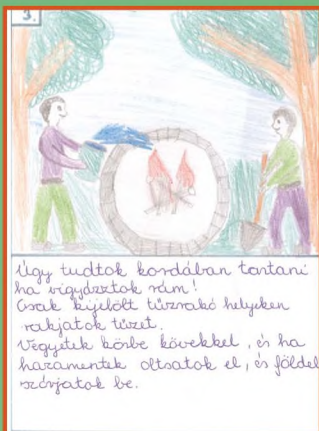 3.
Úgy tudtok kordában tartani
ha vigyáztok rám!
Csak kijelölt tűzrakó helyeken
rakjatok tüzet.
Vegyétek körbe kövekkel, és ha
hazamentek oltsátok el, és földel
szórjátok be.